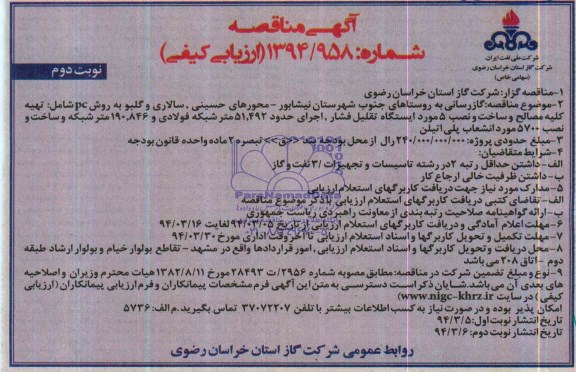 آگهی مناقصه
شماره: ۱۳۹۴/۹۵۸ (ارزیابی کیفی)
نوبت دوم
شرکت ملی گاز ایران
شرکت گاز استان خراسان رضوی
(سهامی خاص)
۱-مناقصه گزار: شرکت گاز استان خراسان رضوی
۲-موضوع مناقصه: گازرسانی به روستاهای جنوب شهرستان نیشابور - محورهای حسینی، سالاری و گلبو به روش pc شامل: تهیه
کلیه مصالح و ساخت و نصب ۵ مورد ایستگاه تقلیل فشار، اجرای حدود ۵۱,۴۹۲ متر شبکه فولادی و ۱۹۰,۸۴۶ متر شبکه و ساخت و
نصب ۵۷۰۰ مورد انشعاب پلی اتیلن
۳-مبلغ حدودی پروژه: ۲۴۰/۰۰۰/۰۰۰/۰۰۰ ریال از محل بودجه بند <<ق>> تبصره ۲ ماده واحده قانون بودجه
۴-شرایط متقاضیان:
الف- داشتن حداقل رتبه ۲ در رشته تاسیسات و تجهیزات / ۳ نفت و گاز
ب- داشتن ظرفیت خالی ارجاع کار
۵-مدارک مورد نیاز جهت دریافت کاربرگهای استعلام ارزیابی
الف- تقاضای کتبی دریافت کاربرگهای استعلام ارزیابی با ذکر موضوع مناقصه
ب- ارائه گواهینامه صلاحیت رتبه بندی از معاونت راهبردی ریاست جمهوری
۶-مهلت اعلام آمادگی و دریافت کاربرگهای استعلام ارزیابی از تاریخ ۹۴/۰۳/۰۵ لغایت ۹۴/۰۳/۱۶
۷-مهلت تکمیل و تحویل کاربرگها و اسناد استعلام ارزیابی تا آخر وقت اداری مورخ ۹۴/۰۳/۳۰
۸-محل دریافت و تحویل کاربرگها و اسناد استعلام ارزیابی، امور قراردادها واقع در مشهد - تقاطع بولوار خیام و بولوار ارشاد طبقه
دوم - اتاق ۲۰۸ می باشد
۹-نوع و مبلغ تضمین شرکت در مناقصه: مطابق مصوبه شماره ۲۹۵۶/ت ۲۸۴۹۳ مورخ ۱۳۸۲/۸/۱۱ هیات محترم وزیران و اصلاحیه
های بعدی آن می باشد. شایان ذکر است دسترسی به متن این آگهی فرم مشخصات پیمانکاران و فرم ارزیابی پیمانکاران (ارزیابی
کیفی) در سایت (www.nigc-khrz.ir)
امکان پذیر بوده و در صورت نیاز به کسب اطلاعات بیشتر با تلفن ۳۷۰۷۲۲۰۷ تماس بگیرید. م الف: ۵۷۳۶
تاریخ انتشار نوبت اول: ۹۴/۳/۵
تاریخ انتشار نوبت دوم: ۹۴/۳/۶
روابط عمومی شرکت گاز استان خراسان رضوی